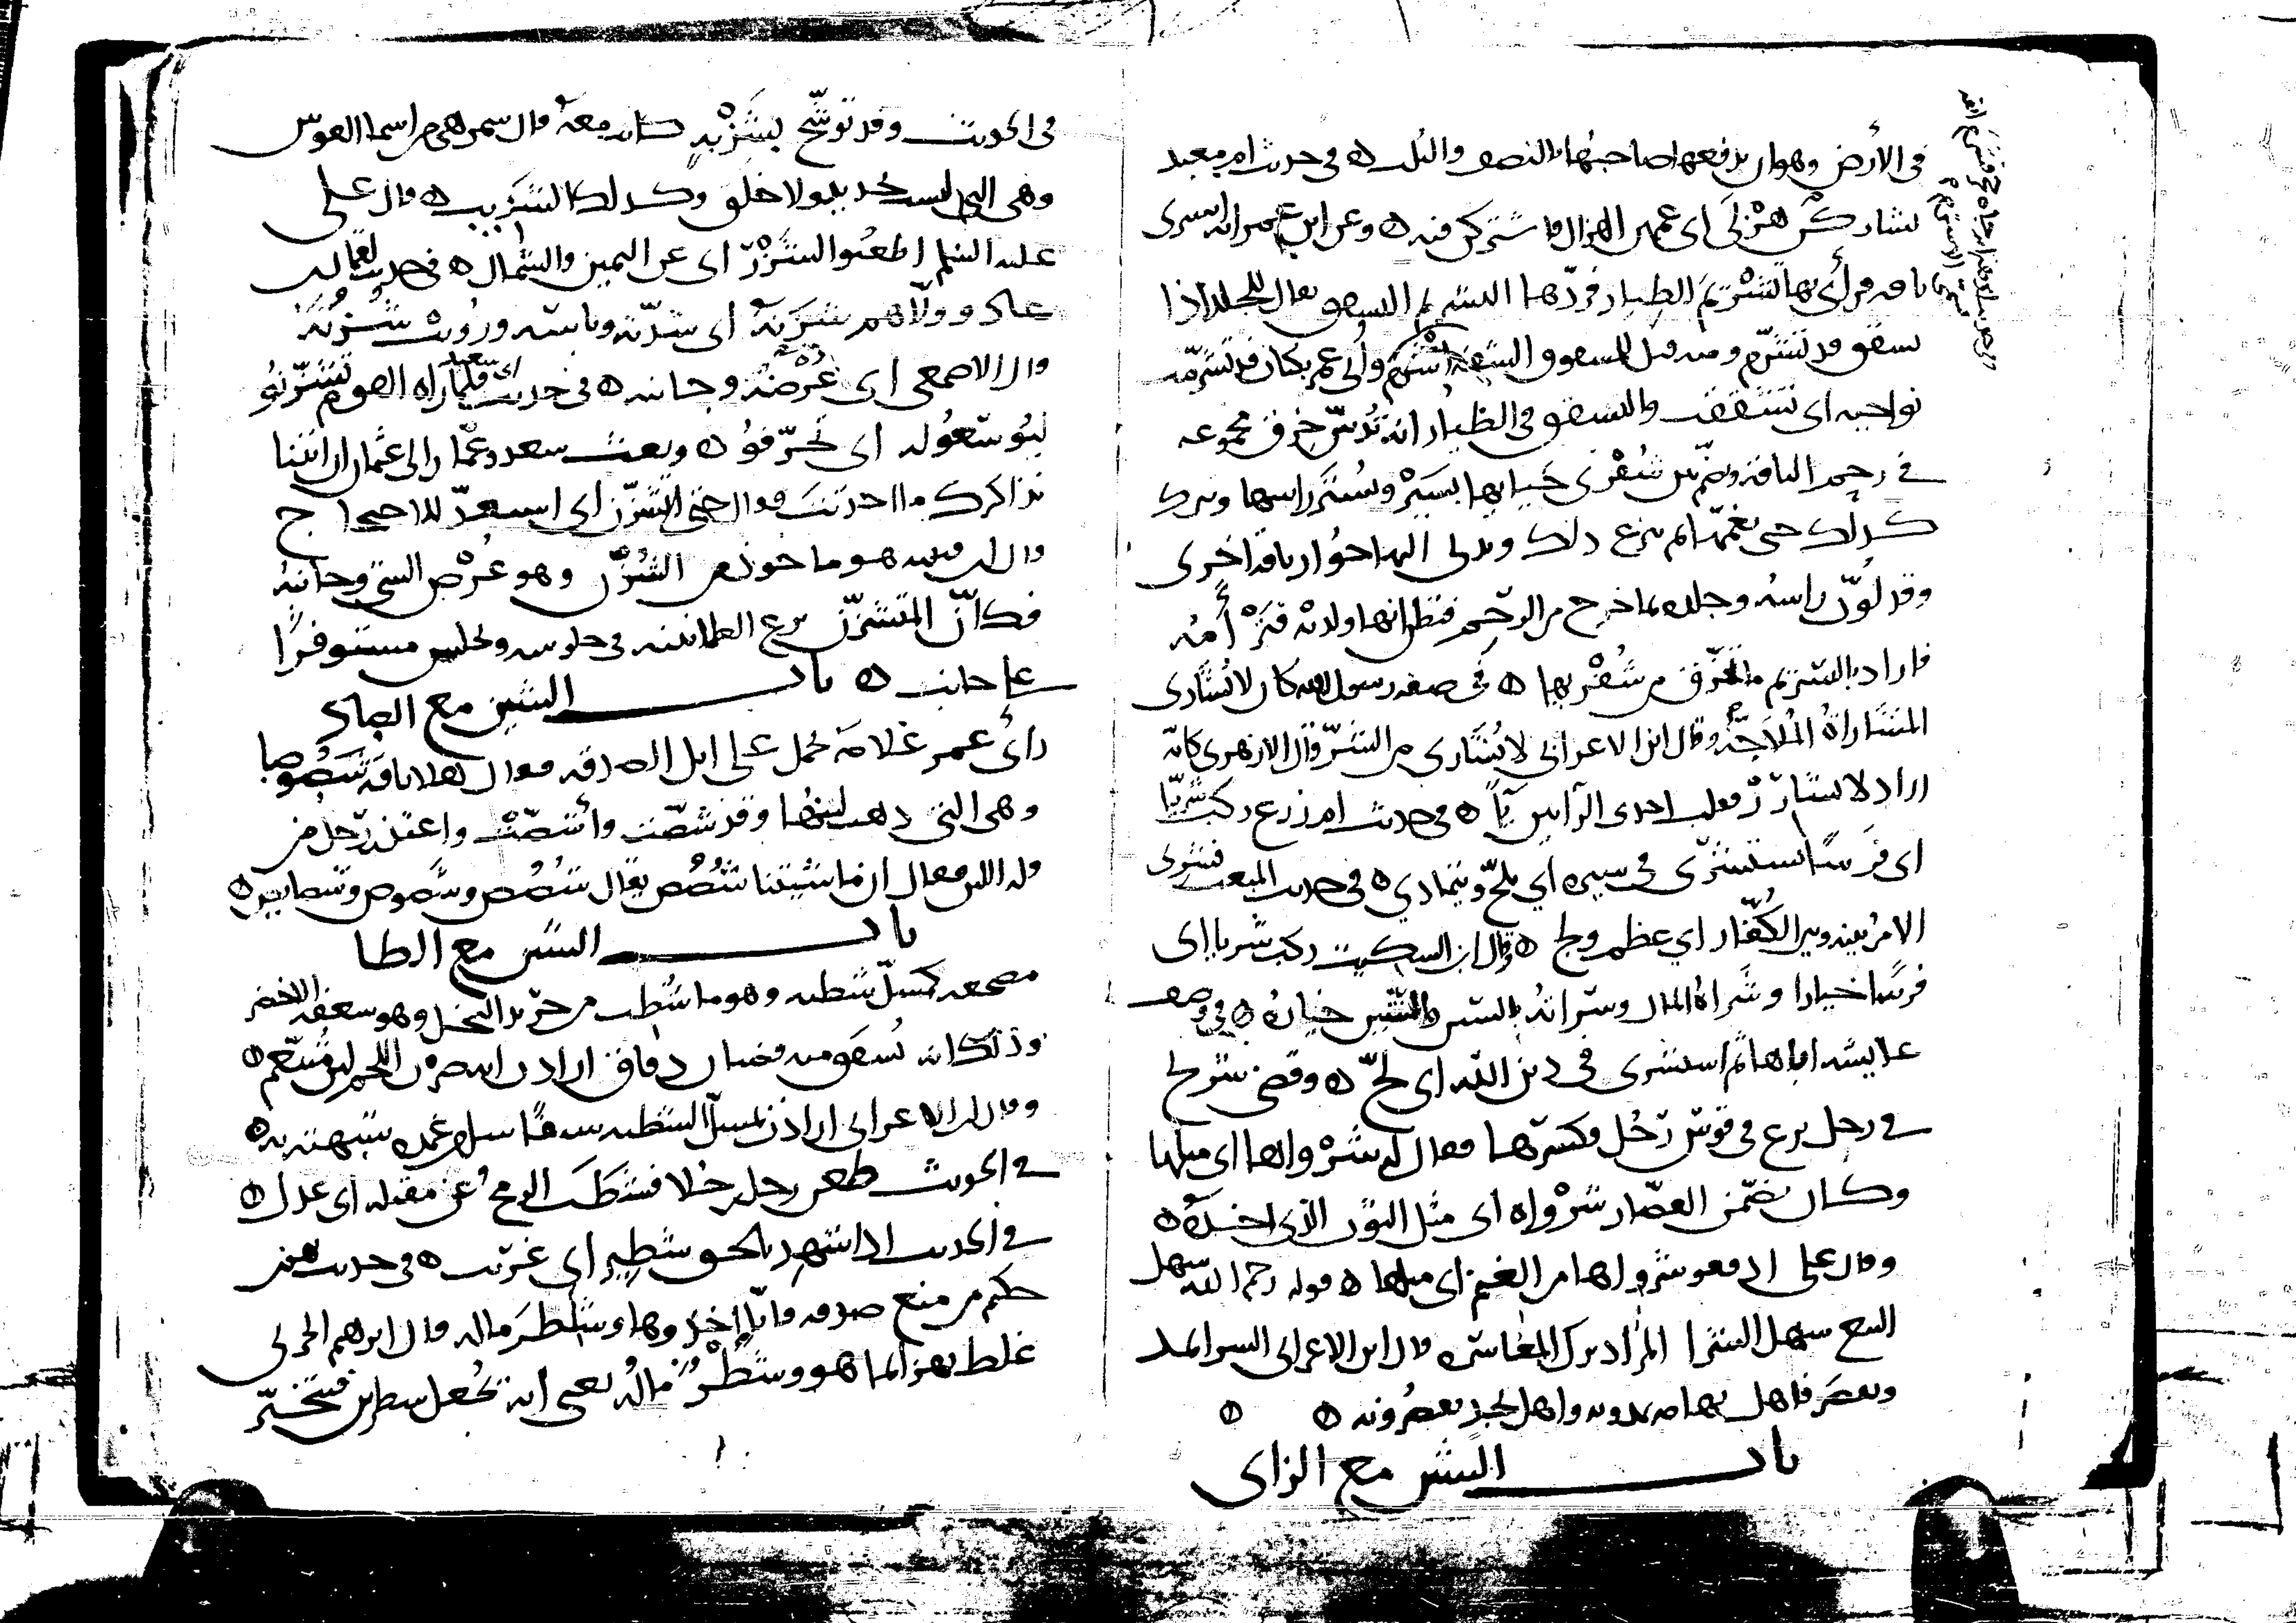 في الأرض وهو ان يدفعها صاحبها بالنصف والثلث ۞ في حديث ام معبد
تشاركن هزلى اي عمهن الهزال فاشتركن فيه ۞ وعن ابن عمر انه اشترى
ناقة فرأى بها تشريم الظئار فردها التشريم التشقيق يقال للجلد اذا
تشقق قد تشرم ومنه قيل للمشقوق الشفة اشرم وأتي عمر بكتاب قد تشرمت
نواحيه اي تشققت والتشقيق في الظئار انه تدس خرق مجموعة
في رحم الناقة ويخم بين شفرى حيائها بسير وتستر راسها وتترك
كذلك حتى يغمها ثم ينزع ذلك ويدنى اليها حوار ناقة اخرى
وقد لوث راسه وجلده بما خرج من الرحم فتظن انها ولدته فترأمه
فاراد بالتشريم ما تخرق من شفريها ۞ في صفة رسول الله كان لا يشارى
المشاراة الملاجة وقال ابن الاعرابي لا يشارى من الشر وقال الازهري كانه
اراد لا يشارر فقلب احدى الراءين ياً ۞ في حديث ام زرع ركب شريا
اي فرسا يستشرى في سيره اي يلج ويتمادي ۞ في حديث المبعث فشرى
الامر بينه وبين الكفار اي عظم ولج ۞ وقال ابن السكيت ركب شريا اي
فرسا خيارا وشراة المال وسراته بالشين والسين خياره ۞ في وصف
عايشة اباها ثم استشرى في دين الله اي لج ۞ وقضى شريح
في رجل نزع في قوس رجل فكسرها فقال له شرواها اي مثلها
وكان يضمن القصار شرواه اي مثل الثوب الذي اخذه ۞
وقال علي ادفعوا شرواها من الغنم اي مثلها ۞ قوله رحم الله سهل
البيع سهل الشرا المراد ترك المغاشة قال ابن الاعرابي الشرا يمد
ويقصر فاهل تهامة يمدونه واهل نجد يقصرونه ۞ ۞
باب الشين مع الزاى
في الحديث وقد توشح بشزبة كانت معه قال شمر هي من اسما القوس
وهي التي ليست بجديد ولا خلق وكذلك الشزيب ۞ قال علي
عليه السلم اطعنوا الشزر اي عن اليمين والشمال ۞ في حديث لقمان
عاد وولاهم شزنه اي شدته وباسه ورويت شزنه
قال الاصمعي اي عرضه وجانبه ۞ في حديث فلما رآه القوم تشزنوا
ليوسعوا له اي تحرفوا ۞ وبعث سعد وعمار الى عثمان ان ائتنا
نذاكرك ما احدثت فقال حتى اتشزن اي استعد للاحتجاج
قال ابن قتيبة هو ماخوذ من الشزن وهو عرض الشي وجانبه
فكأن المتشزن يدع الطمانينة في جلوسه ويجلس مستوفزا
على جانب ۞ باب الشين مع الصاد
رأى عمر غلامه يحمل على ابل الصدقة فقال فهلا ناقة شصوصا
وهي التي ذهب لبنها وقد شصت وأشصت واعتذر رجل من
قلة اللبن فقال ان ماشيتنا شصص يقال شصص وشصوص وشصايص ۞
باب الشين مع الطا
مضجعه كمسل شطبة وهو ما شطب من جريد النخل وهو سعفه الاخضر
وذلك انه يشقق منه قضبان دقاق ارادت انه ضرب اللحم ليس بضخم ۞
وقال ابن الاعرابي ارادت بمسل الشطبة سيفا سل من غمده شبهته به ۞
في الحديث طعن رجل رجلا فشطب الرمح عن مقتله اي عدل ۞
في الحديث اذا شهد بالحق شطير اي غريب ۞ في حديث بهز بن
حكيم من منع صدقة فانا اخذوها وشطر ماله قال ابراهيم الحربي
غلط بهز انما هو وشطر ماله يعني انه يجعل شطرين فيتخير